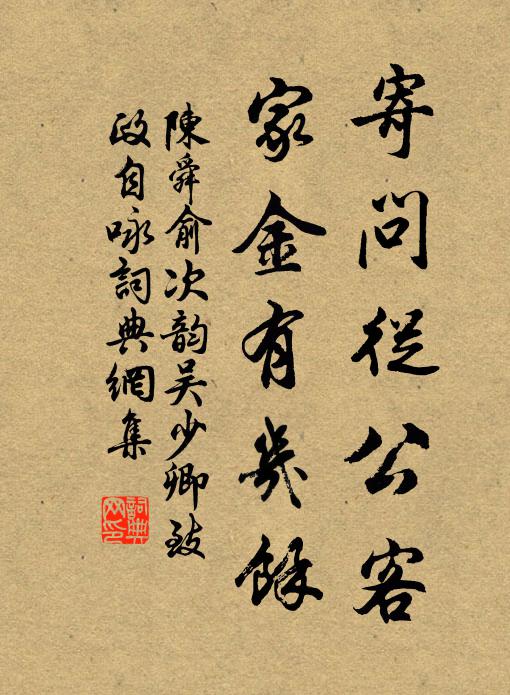 寄問從公客
家金有幾餘
陳舜俞次韵吴少卿致
政自咏詞典網集
詞典
网印